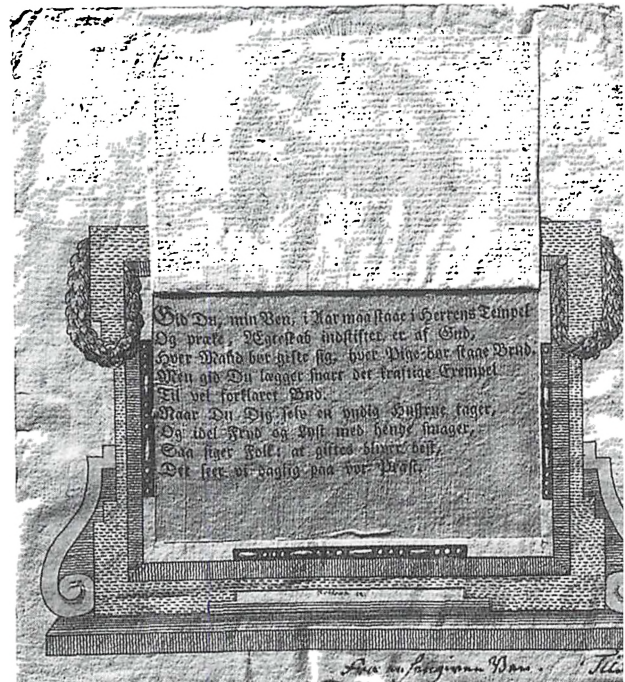 Gid Du, min Ven, i Aar maa staae i Herrens Tempel
Og præke, Ægteskab indstiftet er af Gud,
Hver Mand bør gifte sig, hver Pige bør staae Brud,
Men gid Du lægger snart det kraftige Exempel
Til vel forklaret Bud.
Naar Du Dig selv en yndig Hustrue tager,
Og idel Fryd og Lyst med hende smager,
Saa siger Folk: at giftes bliver best,
Det seer vi daglig paa vor Præst.
Fra en hengiven Ven.